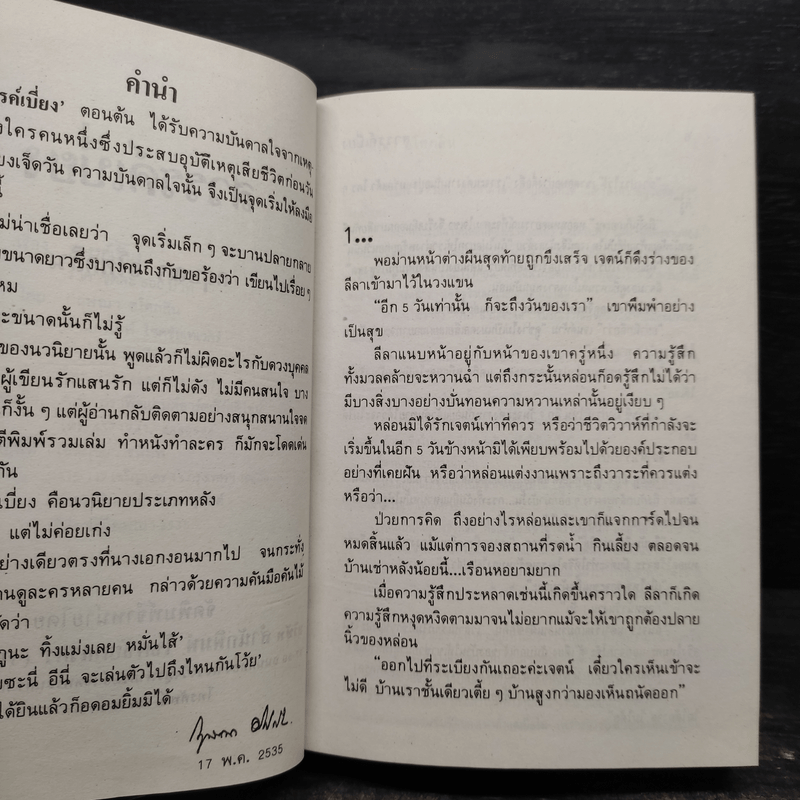 คำนำ
รค์เบี่ยง' ตอนต้น ได้รับความบันดาลใจจากเหตุ-
งใครคนหนึ่งซึ่งประสบอุบัติเหตุเสียชีวิตก่อนวัน
ยงเจ็ดวัน ความบันดาลใจนั้น จึงเป็นจุดเริ่มให้ลงมือ
นี้
ไม่น่าเชื่อเลยว่า จุดเริ่มเล็ก ๆ จะบานปลายกลาย
ขนาดยาวซึ่งบางคนถึงกับขอร้องว่า เขียนไปเรื่อย ๆ
ไหม
ะขนาดนั้นก็ไม่รู้
ของนวนิยายนั้น พูดแล้วก็ไม่ผิดอะไรกับดวงบุคคล
ผู้เขียนรักแสนรัก แต่ก็ไม่ดัง ไม่มีคนสนใจ บาง
ก็งั้น ๆ แต่ผู้อ่านกลับติดตามอย่างสนุกสนานใจจด
ตีพิมพ์รวมเล่ม ทำหนังทำละคร ก็มักจะโดดเด่น
กัน
เบี่ยง คือนวนิยายประเภทหลัง
แต่ไม่ค่อยเก่ง
ย่างเดียวตรงที่นางเอกงอนมากไป จนกระทั่ง
านดูละครหลายคน กล่าวด้วยความคันมือคันไม้
ัดว่า
กูนะ ทิ้งแม่งเลย หมั่นไส้'
ยซะนี่ อีนี่ จะเล่นตัวไปถึงไหนกันโว้ย'
ได้ยินแล้วก็อดอมยิ้มมิได้
17 พ.ค. 2535
1...
พอม่านหน้าต่างผืนสุดท้ายถูกขึงเสร็จ เจตน์ก็ดึงร่างของ
ลีลาเข้ามาไว้ในวงแขน
“อีก 5 วันเท่านั้น ก็จะถึงวันของเรา” เขาพึมพำอย่าง
เป็นสุข
ลีลาแนบหน้าอยู่กับหน้าของเขาครู่หนึ่ง ความรู้สึก
ทั้งมวลคล้ายจะหวานฉ่ำ แต่ถึงกระนั้นหล่อนก็อดรู้สึกไม่ได้ว่า
มีบางสิ่งบางอย่างบั่นทอนความหวานเหล่านั้นอยู่เงียบ ๆ
หล่อนมิได้รักเจตน์เท่าที่ควร หรือว่าชีวิตวิวาห์ที่กำลังจะ
เริ่มขึ้นในอีก 5 วันข้างหน้ามิได้เพียบพร้อมไปด้วยองค์ประกอบ
อย่างที่เคยฝัน หรือว่าหล่อนแต่งงานเพราะถึงวาระที่ควรแต่ง
หรือว่า...
ป่วยการคิด ถึงอย่างไรหล่อนและเขาก็แจกการ์ดไปจน
หมดสิ้นแล้ว แม้แต่การจองสถานที่รดน้ำ กินเลี้ยง ตลอดจน
บ้านเช่าหลังน้อยนี้...เรือนหอยามยาก
เมื่อความรู้สึกประหลาดเช่นนี้เกิดขึ้นคราวใด ลีลาก็เกิด
ความรู้สึกหงุดหงิดตามมาจนไม่อยากแม้จะให้เขาถูกต้องปลาย
นิ้วของหล่อน
“ออกไปที่ระเบียงกันเถอะค่ะเจตน์ เดี๋ยวใครเห็นเข้าจะ
ไม่ดี บ้านเราชั้นเดียวเตี้ย ๆ บ้านสูงกว่ามองเห็นถนัดออก”